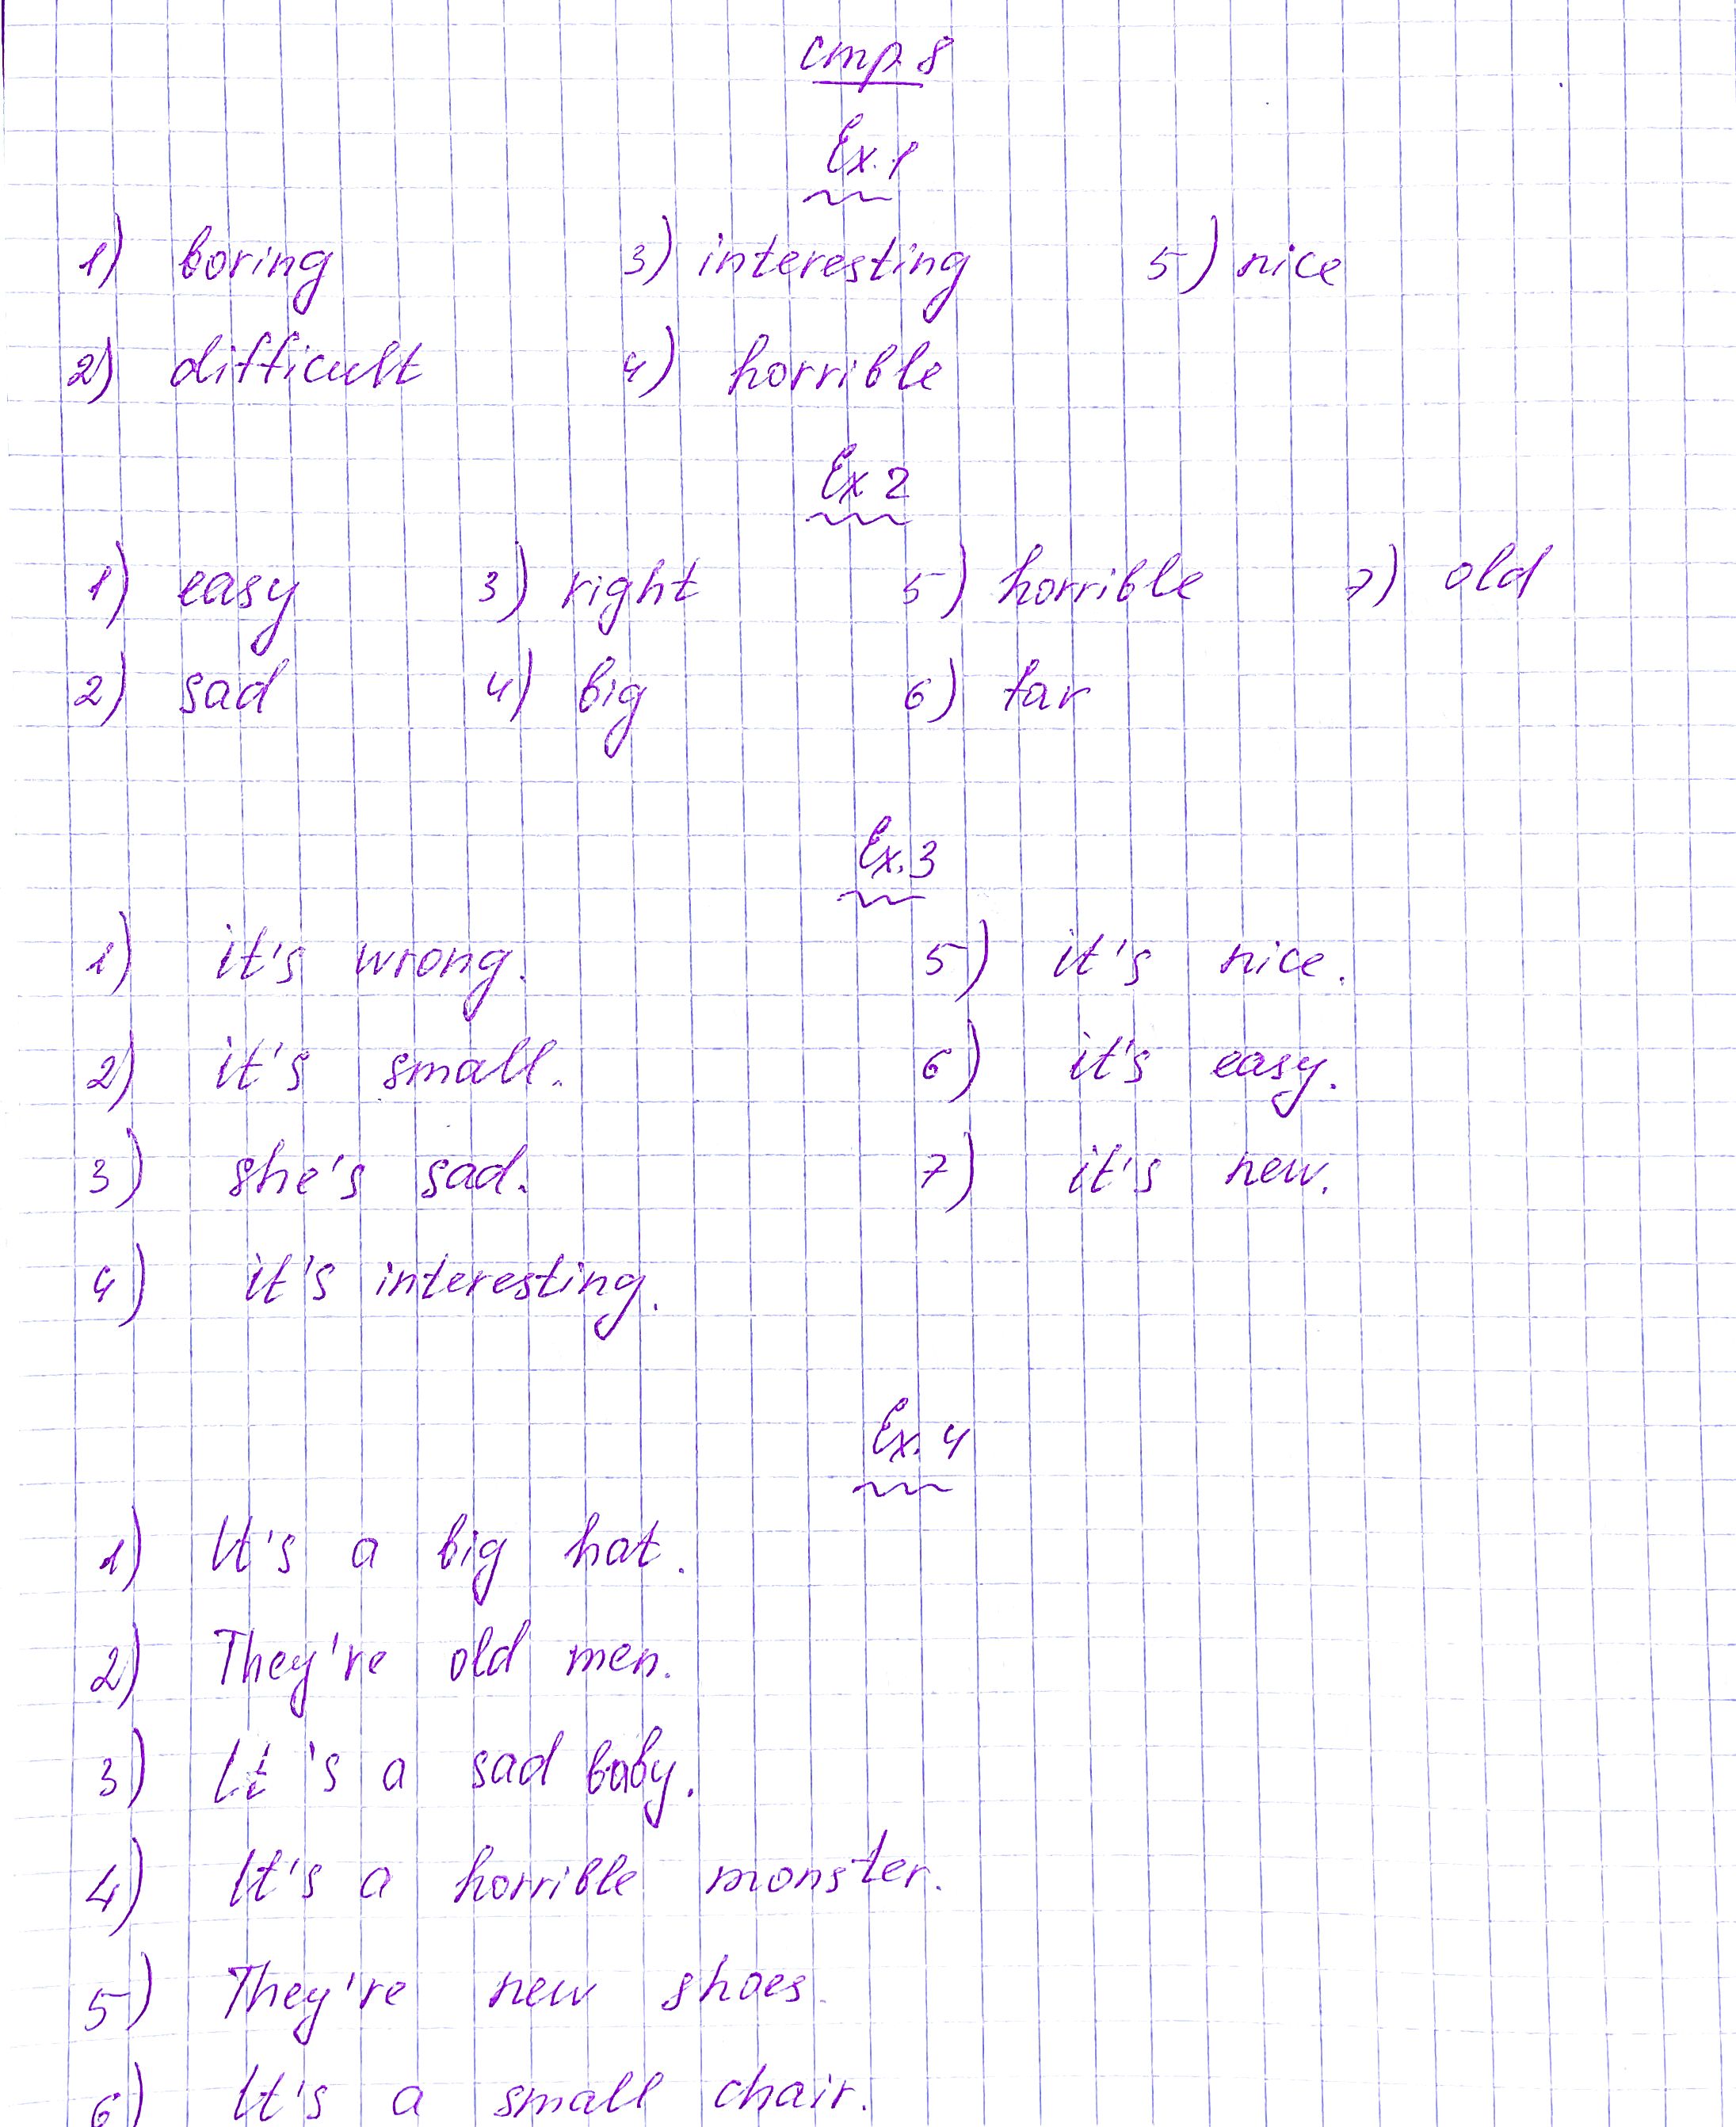 стр. 8
Ex. 1
1) boring 3) interesting 5) nice
2) difficult 4) horrible
Ex 2
1) easy 3) right 5) horrible 7) old
2) sad 4) big 6) far
Ex. 3
1) it's wrong. 5) it's nice.
2) it's small. 6) it's easy.
3) she's sad. 7) it's new.
4) it's interesting.
Ex. 4
1) It's a big hat.
2) They're old men.
3) It's a sad baby.
4) It's a horrible monster.
5) They're new shoes.
6) It's a small chair.